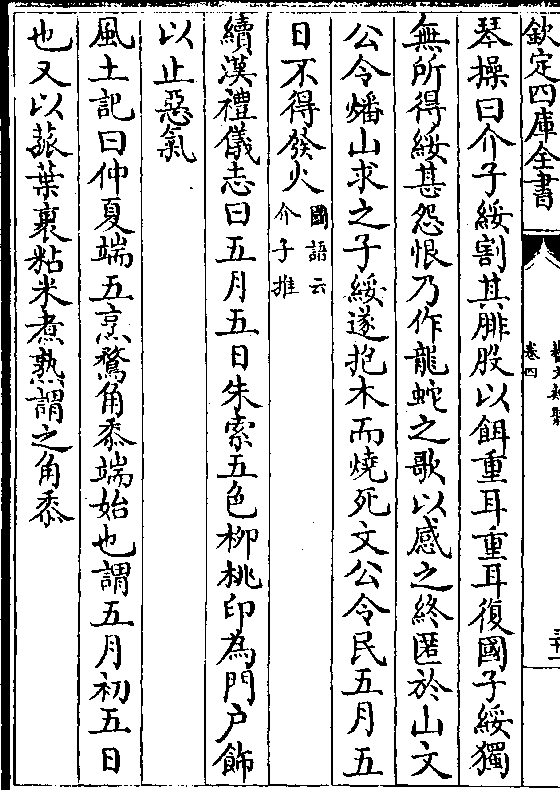 欽定四庫全書
卷四
琴操曰介子綏割其腓股以餌重耳重耳復國子綏獨
無所得綏甚怨恨乃作龍蛇之歌以感之終匿於山文
公令燔山求之子綏遂抱木而燒死文公令民五月五
日不得發火國語云介子推
續漢禮儀志曰五月五日朱索五色柳桃印為門戶飾
以止惡氣
風土記曰仲夏端五烹鶩角黍端始也謂五月初五日
也又以菰葉裹粘米煮熟謂之角黍